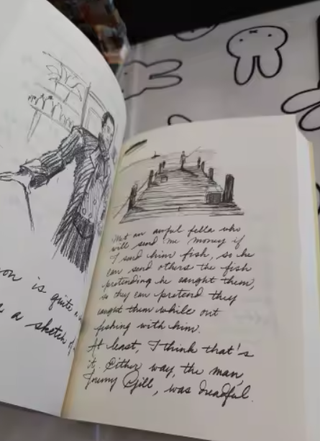 on is quite a
e a sketch of
an awful fella who
will send me money if
I send him fish, so he
can send others the fish
pretending he caught them,
so they can pretend they
caught them while out
fishing with him.
At least, I think that's
it. Either way, the man,
Jeremy Gill, was dreadful.